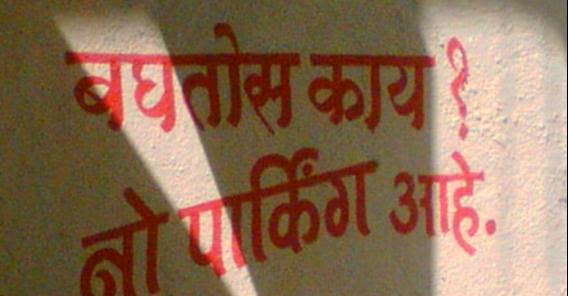 बघतोस काय ?
नो पार्किंग आहे.